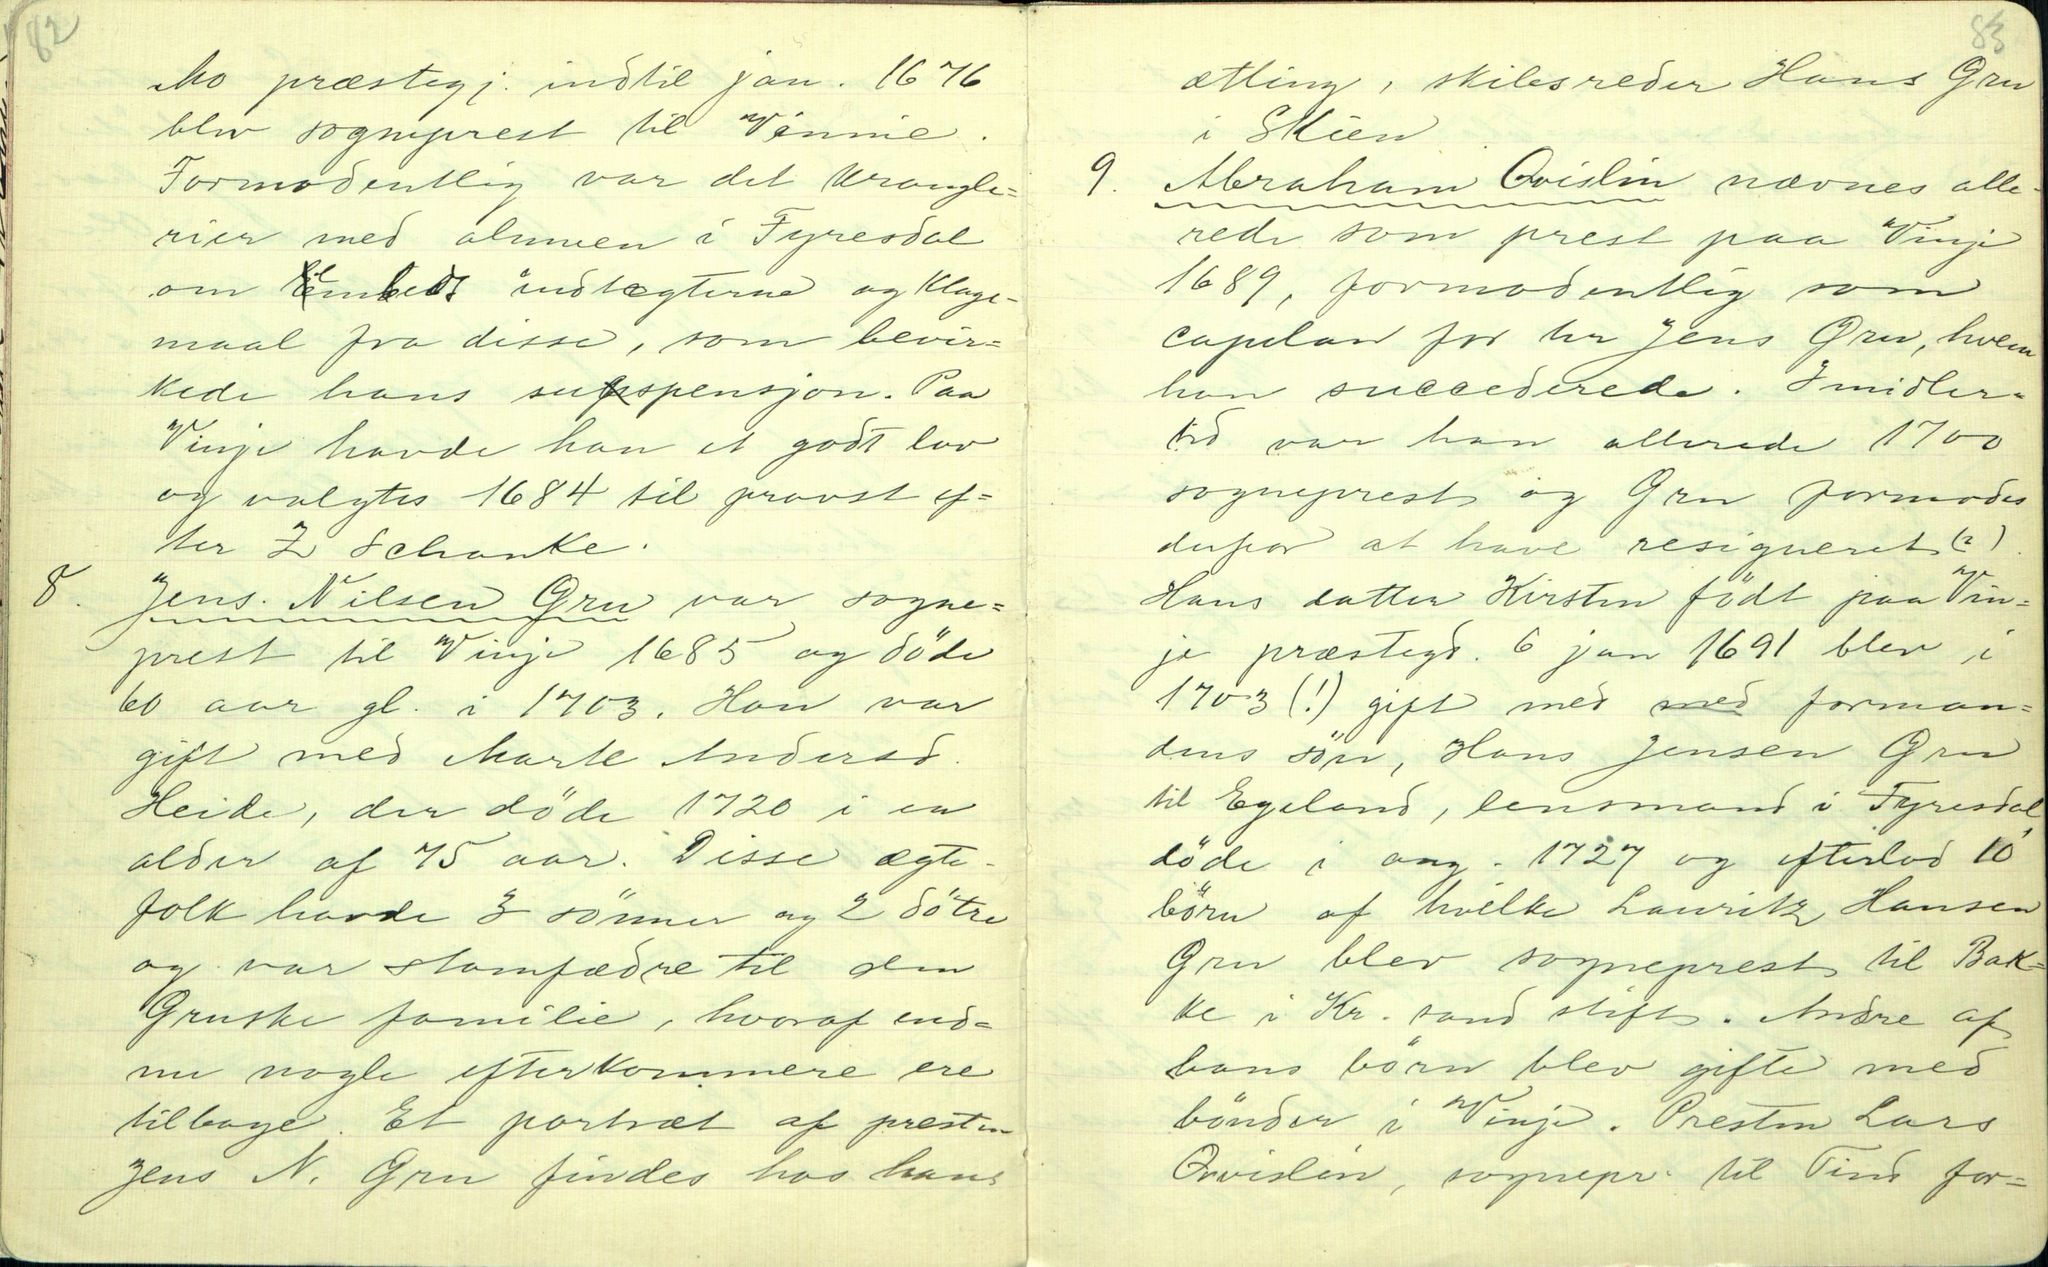 82
Mo præstegj. indtil jan. 1676
blev sogneprest til Vinnie.
Formodentlig var det krangle=
rier med almuen i Fyresdal
om Embeds indtægterne og klage-
maal fra disse, som bevir=
kede hans suspensjon. Paa
Vinje havde han et godt lov
og valgtes 1684 til provst ef=
ter Z Schanke.
8. Jens Nilsen Gru var sogne=
prest til Vinje 1685 og döde
60 aar gl. i 1703. Han var
gift med Marte Andersd.
Heide, der döde 1720 i en
alder af 75 aar. Disse ægte-
folk havde 3 sönner og 2 dötre
og var stamfædre til den
Gruske familie, hvoraf end=
nu nogle efterkommere ere
tilbage. Et portræt af presten
Jens N. Gru findes hos hans
83
ætling, skibsreder Hans Gru
i Skien
9. Abraham Qvislin nævnes alle-
rede som prest paa Vinje
1689, formodentlig som
capelan for hr Jens Gru, hvem
han succederede. Imidler=
tid var han allerede 1700
sogneprest og Gru formodes
derfor at have resigneret (?).
Hans datter Kirsten födt paa Vin=
je præstegd. 6 jan 1691 blev i
1703 (!) gift med med forman=
dens sön, Hans Jensen Gru
til Egeland, lensmand i Fyresdal,
döde i aug. 1727 og efterlod 10
börn af hvilke Lauritz Hansen
Gru blev sogneprest til Bak=
ke i Kr.sand stift. Andre af
hans börn blev gifte med
bönder i Vinje. Presten Lars
Qvislin, sognepr. til Tind for=